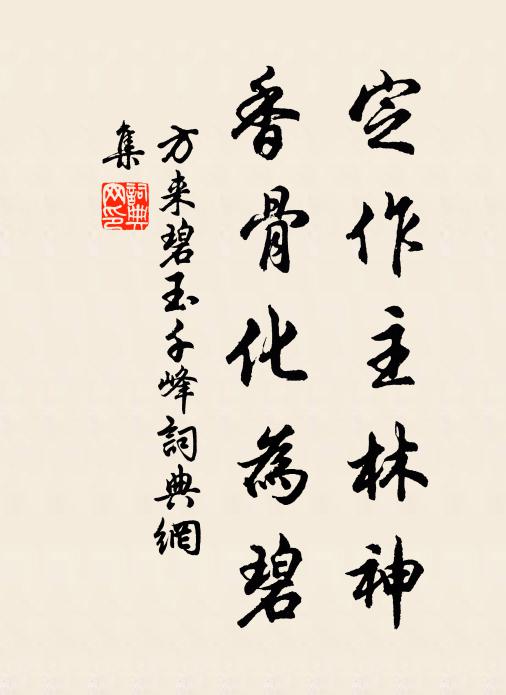 定作主林神
香骨化為碧
方来碧玉千峰詞典網
集
詞典
网印